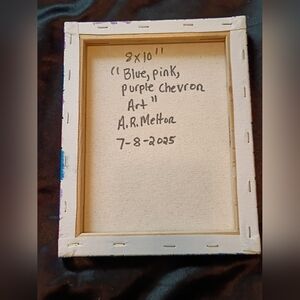 8x10"
"Blue, pink,
purple Chevron
Art"
A.R.Melton
7-8-2025